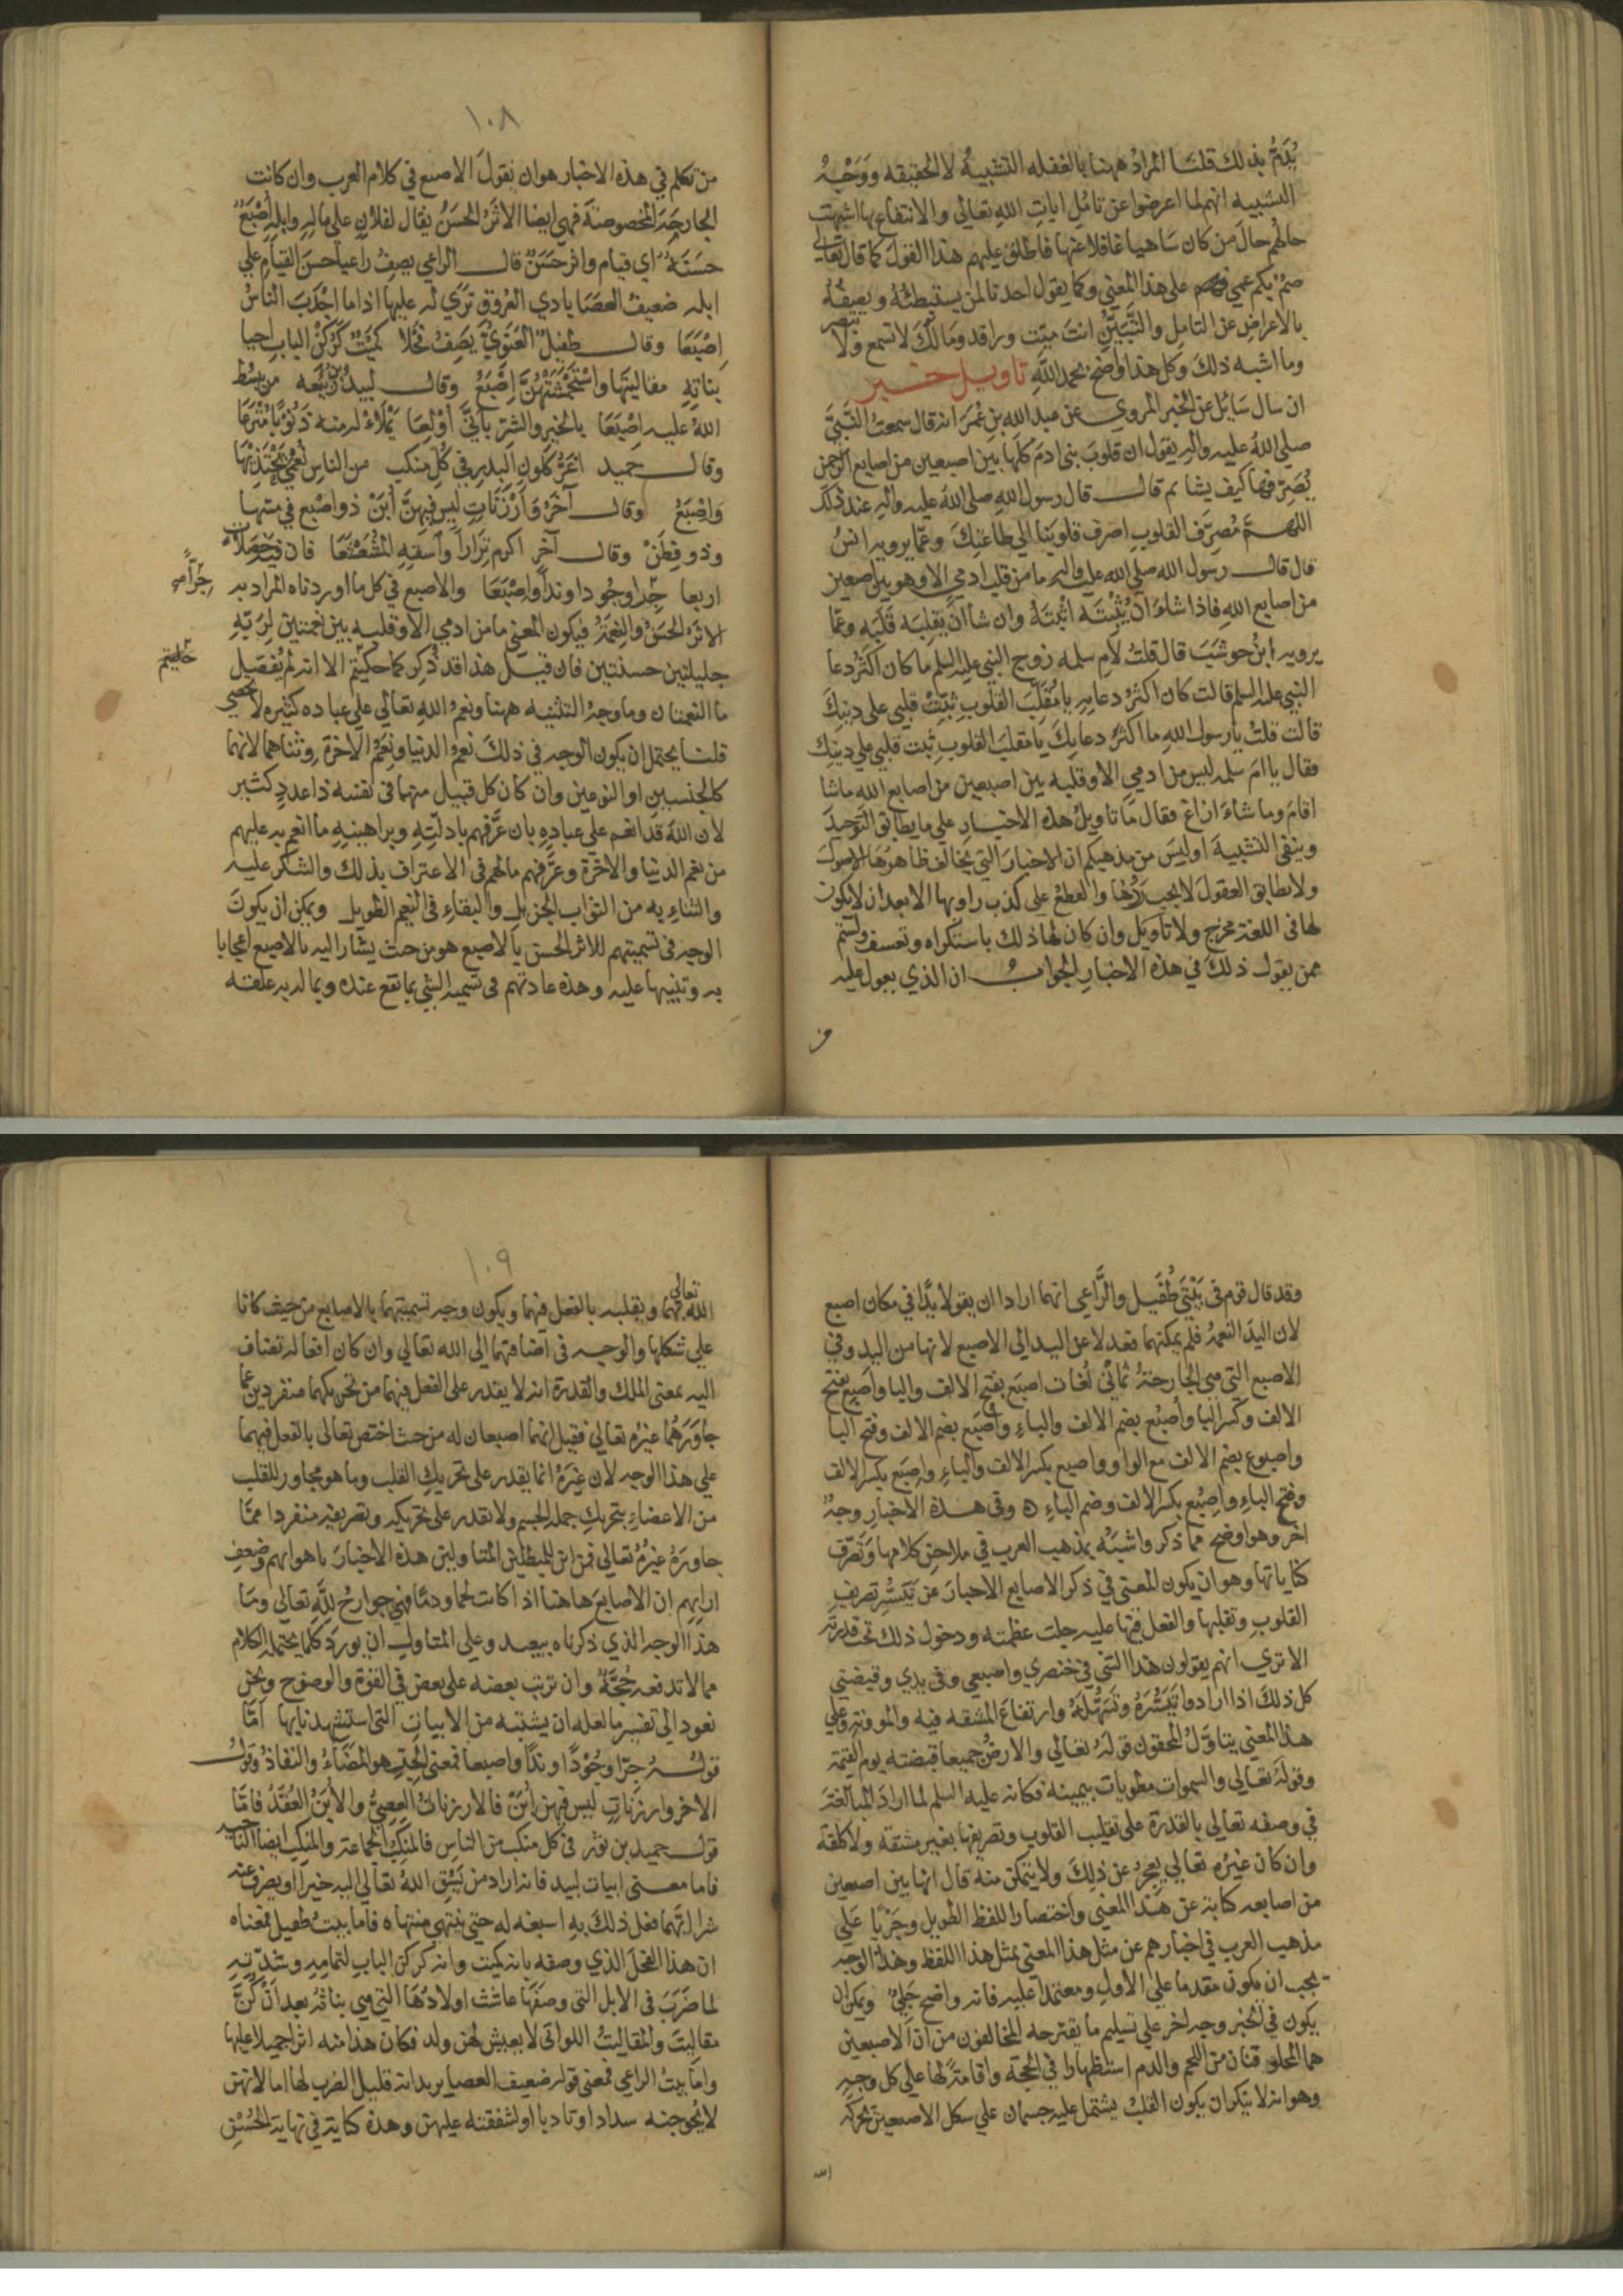 يُذَمُّ بذلك قلنا المراد ههنا بالغفله التشبيه لا الحقيقه ووَجْهُ
التشبيه انهم لما اعرضوا عن تامّل ايات الله تعالى والانتفاع بها اشبهت
حالهم حال من كان ساهيا غافلا عنها فاطلق عليهم هذا القول كما قال تعالى
صمّ بكم عمي على هذا المعني وكما يقول احدنا لمن يستبطئه ويصفه
بالاعراض عن التامل والتَّبَيُّن انت ميّت وراقد ومالك لا تسمع ولا تبصر
وما اشبه ذلك وكل هذا واضح بحمد الله تاويل خبر
ان سال سايل عن الخبر المروي عن عبد الله بن عُمَر انه قال سمعت النَّبيّ
صلي الله عليه واله يقول ان قلوب بنى ادم كلها بين اصبعين من اصابع الرحمن
يُصَرِّفها كيف يشا ثم قال قال رسول الله صلى الله عليه واله عند ذلك
اللهمَّ مُصرِّف القلوب اصرف قلوبنا الي طاعتك وعمّا يرويه انس
قال قال رسول الله صلي الله عليه واله ما من قلب ادمي الا وهو بين اصبعين
من اصابع الله فاذا شاء ان يُثْبتَه اثبته وان شاء انّ يقلبه قلبه وعمّا
يرويه ابنُ حوشب قال قلتُ لام سلمه زوج النبي عليه السلم ما كان اكثر دعا
النبي عليه السلم قالت كان اكثر دعايه يا مُقَلِّبَ القلوب ثبّت قلبي على دينكَ
قالت قلت يا رسول الله ما اكثر دعايكَ يا مقلب القلوب ثبت قلبي علي دينك
فقال يا ام سلمه ليس من ادمي الا وقلبه بين اصبعين من اصابع الله ما شا
اقام وما شاء ازاغ فقال ما تاويل هذه الاخبار علي ما يطابق التوحيد
وينفي التشبيه اوليس من مذهبكم ان الاخبار التي يخالف ظاهرُها الاصول
ولا تطابق العقول لا يجب رَدُّها والقطع على كذب راويها الا بعد ان لا يكون
لها في اللغة مخرج ولا تاويل وان كان لها ذلك باستكراه وتعسف ولستم
ممن يقول ذلك في هذه الاخبار الجواب ان الذي يعول عليه
١٠٨
من تكلم في هذه الاخبار هو ان نقول الاصبع في كلام العرب وان كانت
الجارحة المخصوصة فهي ايضا الاثر الحسن يقال لفلان على ماله وابله اصبع
حسنة اي قيام واثر حسن قال الراعي يصف راعيا حسن القيام علي
ابله ضعيف العصا بادي العروق تري له عليها اذا ما اجدب الناسُ
اصبعا وقال طفيل الغنوي يصف فحلا كميت كركن الباب احيا
بناته مقاليتها واستحمشتهن اصبع وقال لبيد بن ربيعه من يبسط
الله عليه اصبعا بالخير والشر بايّ اولعا يملاء له منه ذنوبا مترعا
وقال حميد اغرّ كلون البدر في كل منكب من الناس نُعمي يحتذيها
واصبع وقال آخر وارزنات ليس فيهن أُبَنْ ذو اصبع في مسها
وذو فِطَنْ وقال آخر اكرم نزارا واسقه المشعشعا فان فيه خصلات
اربعا جِدا وجودا وندا واصبعا والاصبع في كل ما اوردناه المراد به
الاثر الحسن والنعمة فيكون المعني ما من ادمي الا وقلبه بين نعمتين لربه
جليلتين حسنتين فان قيل هذا قد ذُكِر كما حكيتم الا انه لم يفصل
ما النعمتان وما وجه التثنيه ههنا ونعم الله تعالي علي عباده كثيره لا تحصي
قلنا يحتمل ان يكون الوجه في ذلك نعم الدنيا ونعم الاخرة وثناهما لانهما
كالجنسين او النوعين وان كان كل قبيل منهما فى نفسه ذا عدد كثير
لان الله قد انعم علي عباده بان عرّفهم بادلته وبراهينه ما انعم به عليهم
من نعم الدنيا والاخرة وعرّفهم مالهم فى الاعتراف بذلك والشكر عليه
والثناء به من الثواب الجزيل والبقاء فى النعيم الطويل ويمكن ان يكون
الوجه فى تسميتهم للأثر الحسن بالاصبع هو من حيث يشار اليه بالاصبع اعجابا
به وتنبيها عليه وهذه عادتهم فى تسمية الشي بما يقع عنده وبما له به علقه
وقد قال قوم فى بَيْتَي طُفَيل والرَّاعي انهما ارادا ان يقولا يدًا في مكان اصبع
لان اليد النعمة فلم يمكنهما فعدلا عن اليد الي الاصبع لانها من اليد وفي
الاصبع التي هي الجارحة ثماني لغات اصبَع بفتح الالف والبا واصبِع بفتح
الالف وكسر البا واُصبُع بضم الالف والباء واُصبَع بضم الالف وفتح البا
واصبوع بضم الالف مع الواو واصبع بكسر الالف والباء واِصبَع بكسر الالف
وفتح الباء واِصبُع بكسر الالف وضم الباء ٥ وفى هذه الاخبار وجهٌ
اخر وهو اوضح مما ذكر واشبَه بمذهب العرب في ملاحن كلامها وتصرّف
كناياتها وهو ان يكون المعنى في ذكر الاصابع الاخبار عن تيسّر تصريف
القلوب وتقلبها والفعل فيها عليه جلت عظمته ودخول ذلك تحت قدرته
الا تري انهم يقولون هذا الشي في خنصري واصبعي وفى يدي وقبضتي
كل ذلك اذا ارادوا تيسّره وتسهّله وارتفاع المشقه فيه والموونه وعلي
هذا المعني يتاوّل المحققون قوله تعالي والارض جميعا قبضته يوم القيمة
وقوله تعالى والسموات مطويات بيمينه فكانه عليه السلم لما اراد المبالغة
في وصفه تعالى بالقدرة على تقليب القلوب وتصريفها بغير مشقة ولا كلفة
وان كان غيره تعالي يعجز عن ذلك ولا يتمكن منه قال انها بين اصبعين
من اصابعه كناية عن هذا المعني واختصارا للفظ الطويل وجَرْيًا علي
مذهب العرب في اخبارهم عن مثل هذا المعنى بمثل هذا اللفظ وهذا الوجه
يجب ان يكون مقدما علي الاول ومعتمدا عليه فانه واضح جَليّ ويمكن ان
يكون في الخبر وجه اخر علي تسليم ما يقترحه المخالفون من ان الاصبعين
هما المخلوقتان من اللحم والدم استظهارا في الحجة واقامة لها علي كل وجه
وهو انه لا ينكر ان يكون القلب يشتمل عليه جسمان علي شكل الاصبعين يحركه
الله
١٠٩
الله تعالى بهما ويقلبه بالفعل فيهما ويكون وجه تسميتهما بالاصابع من حيث كانا
علي شكلها والوجه فى اضافتهما الى الله تعالي وان كان افعاله تضاف
اليه بمعنى الملك والقدرة انه لا يقدر على الفعل فيهما من تحريكهما منفردين عما
جاورهما غيره تعالي فقيل انهما اصبعان له من حيث اختص تعالى بالفعل فيهما
علي هذا الوجه لان غيره انما يقدر على تحريك القلب وما هو مجاور للقلب
من الاعضاء بتحريك جملة الجسم ولا يقدر على تحريكه وتصريفه منفردا ممّا
جاوره غيره تعالي فمن اين للمبطلين المتاولين هذه الاخبار باهوائهم وضعف
ارايهم ان الاصابع هاهنا اذا كانت لحما ودما فهي جوارح لله تعالي وما
هذا الوجه الذي ذكرناه ببعيد وعلي المتاول ان يورد كلما يحتمله الكلام
مما لا تدفعه حُجّةٌ وان ترتب بعضه على بعض في القوة والوضوح ونحن
نعود الي تفسير ما لعله ان يشتبه من الابيات التى استشهدنا بها امّا
قوله جدا وجُودًا وندًا واصبعا فمعني الجد هو المضاء والنفاذ وقول
الاخر وارزنات ليس فيهن أُبَنْ فالارزنات العِصيّ والأُبَن العُقَد فامّا
قول حميد بن ثور فى كل منكب من الناس فالمنكب الجماعة والمنكب ايضا الناحيه
فاما معنى ابيات لبيد فانه اراد من يسق الله تعالي اليه خيرا او يصرف عنه
شرا ايّهما فعل ذلك به اسبغه له حتى ينتهي منتهاه فاما بيت طفيل فمعناه
ان هذا الفحل الذي وصفه بانه كميت وانه كركن الباب لتمامه وشدّته
لما ضَرَبَ فى الابل التى وصفها عاشت اولادُها التي هي بناته بعد انْ كُنَّ
مقاليت والمقاليت اللواتى لا يعيش لهن ولد فكان هذا منه اثرا جميلا عليها
واما بيت الراعي فمعنى قوله ضعيف العصا يريد انه قليل الضرب لها اما لانهن
لا يحوجنه سدادا وتاديبا او لشفقته عليهن وهذه كناية في نهاية الحُسْن